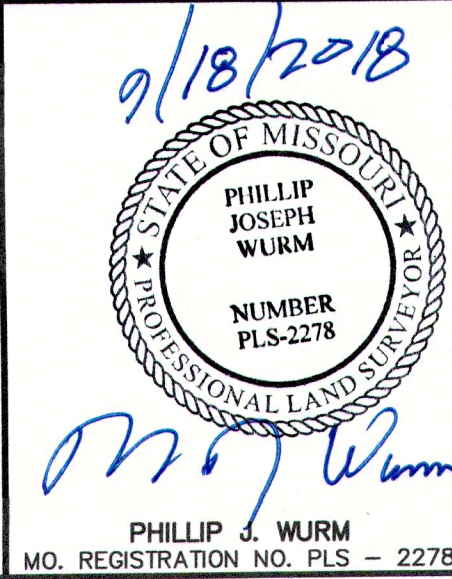 9/18/2018
STATE OF MISSOURI
PHILLIP
JOSEPH
WURM
NUMBER
PLS-2278
PROFESSIONAL LAND SURVEYOR
PHILLIP J. WURM
MO. REGISTRATION NO. PLS – 2278